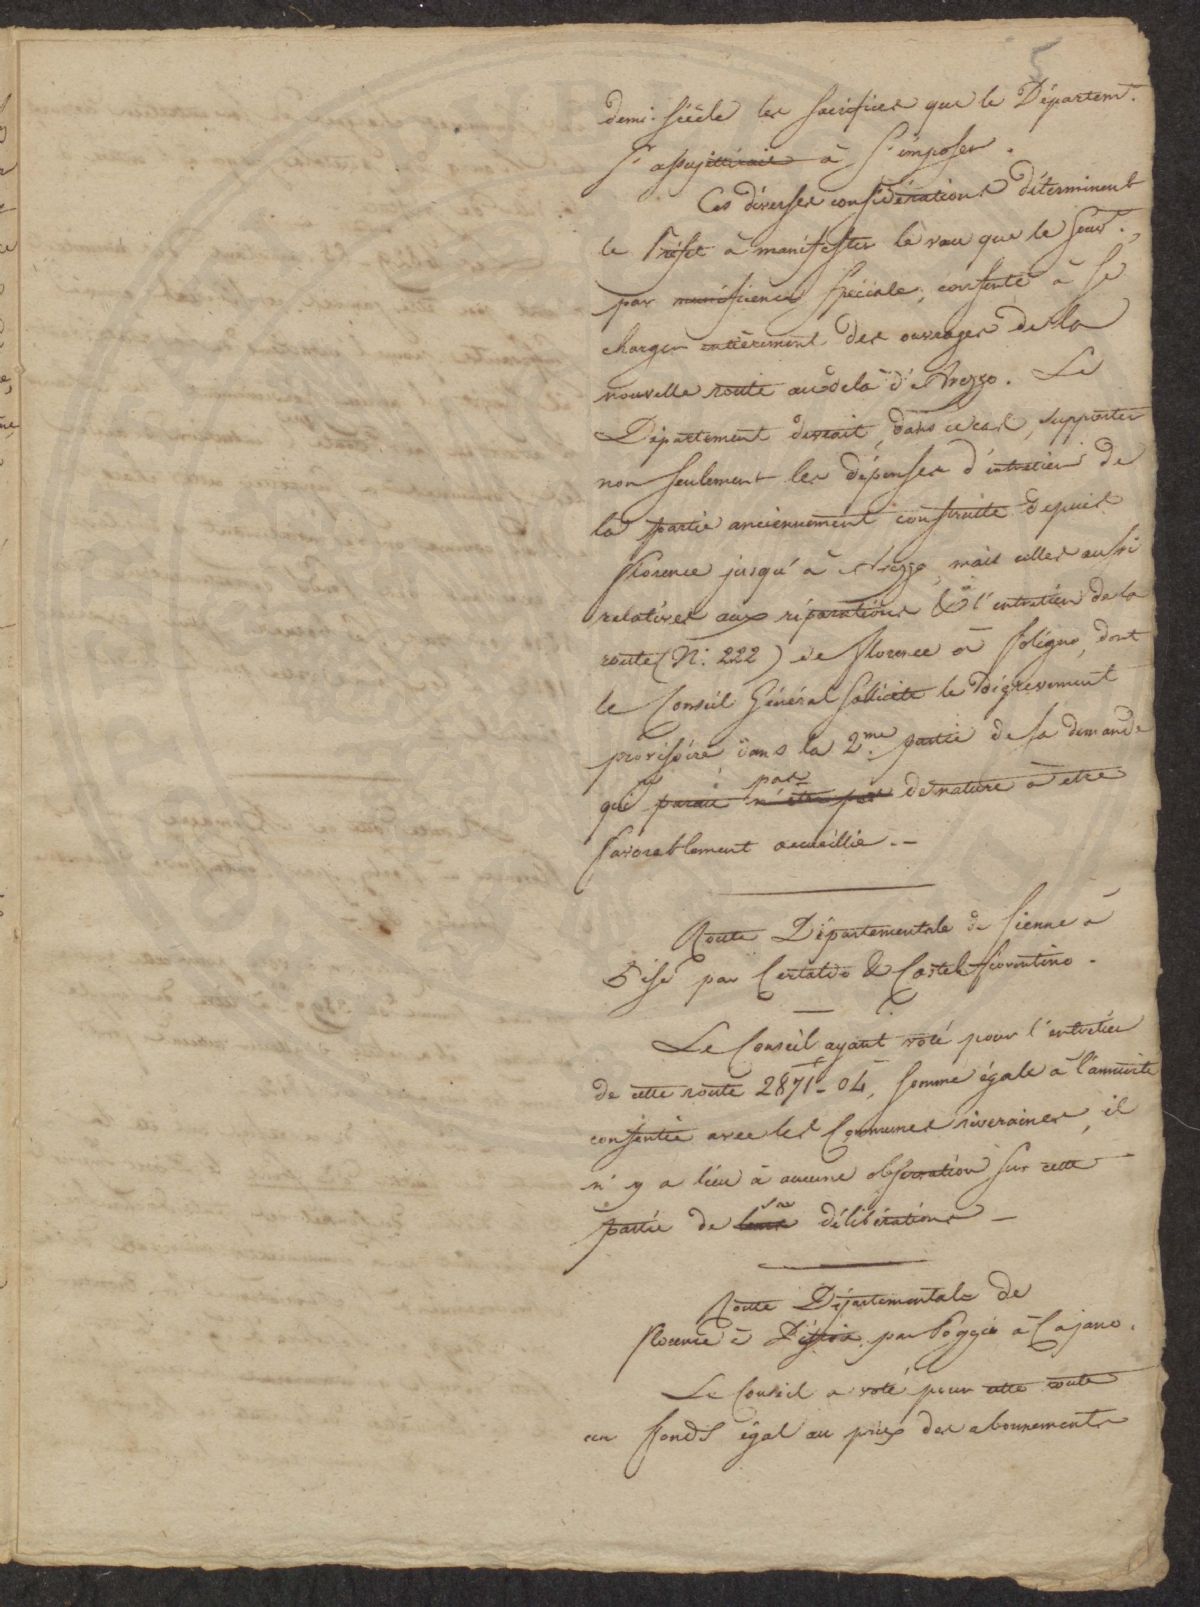 5
demi-siècle les sacrifices que le Départem.t
s'assujettirait à s'imposer.
Ces diverses considérations déterminent
le Préfet à manifester le vœu que le Gouv.t,
par munificence spéciale, consente à se
charger entièrement des ouvrages de la
nouvelle route au delà d'Arezzo. Le
Département devrait, dans ce cas, supporter
non seulement les dépenses d'entretien de
la partie anciennement construite depuis
Florence jusqu'à Arezzo, mais celles aussi
relatives aux réparations & à l'entretien de la
route (N.° 222) de Florence à Foligno, dont
le Conseil Général sollicite le dégrèvement
provisoire dans la 2.me partie de sa demande
qui parait n'être pas de nature à etre
favorablement accueillie. –
Route Départementale de Sienne à
Pise par Certaldo & Castel fiorentino.
Le Conseil ayant voté pour l'entretien
de cette route 2871f- 04, somme égale à l'annuité
consentie avec les Communes riveraines, il
n'y a lieu à aucune observation sur cette
partie de ses délibérations –
Route Départementale de
Florence à Pistoia par Poggio à Cajano.
Le Conseil a voté pour cette route
un fonds égal au prix des abonnements